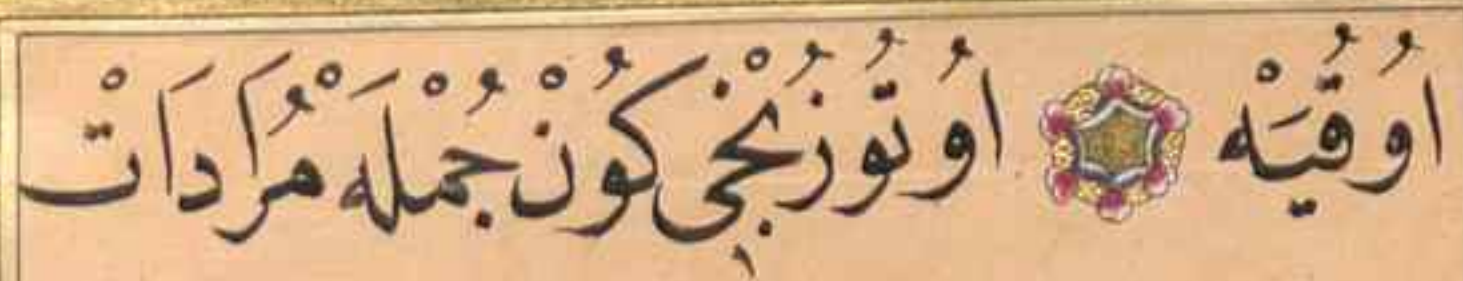 اُوقُيَهْ اُوتُوزُنْجِى كُونْ جُمْلَهْ مُرَادَاتْ